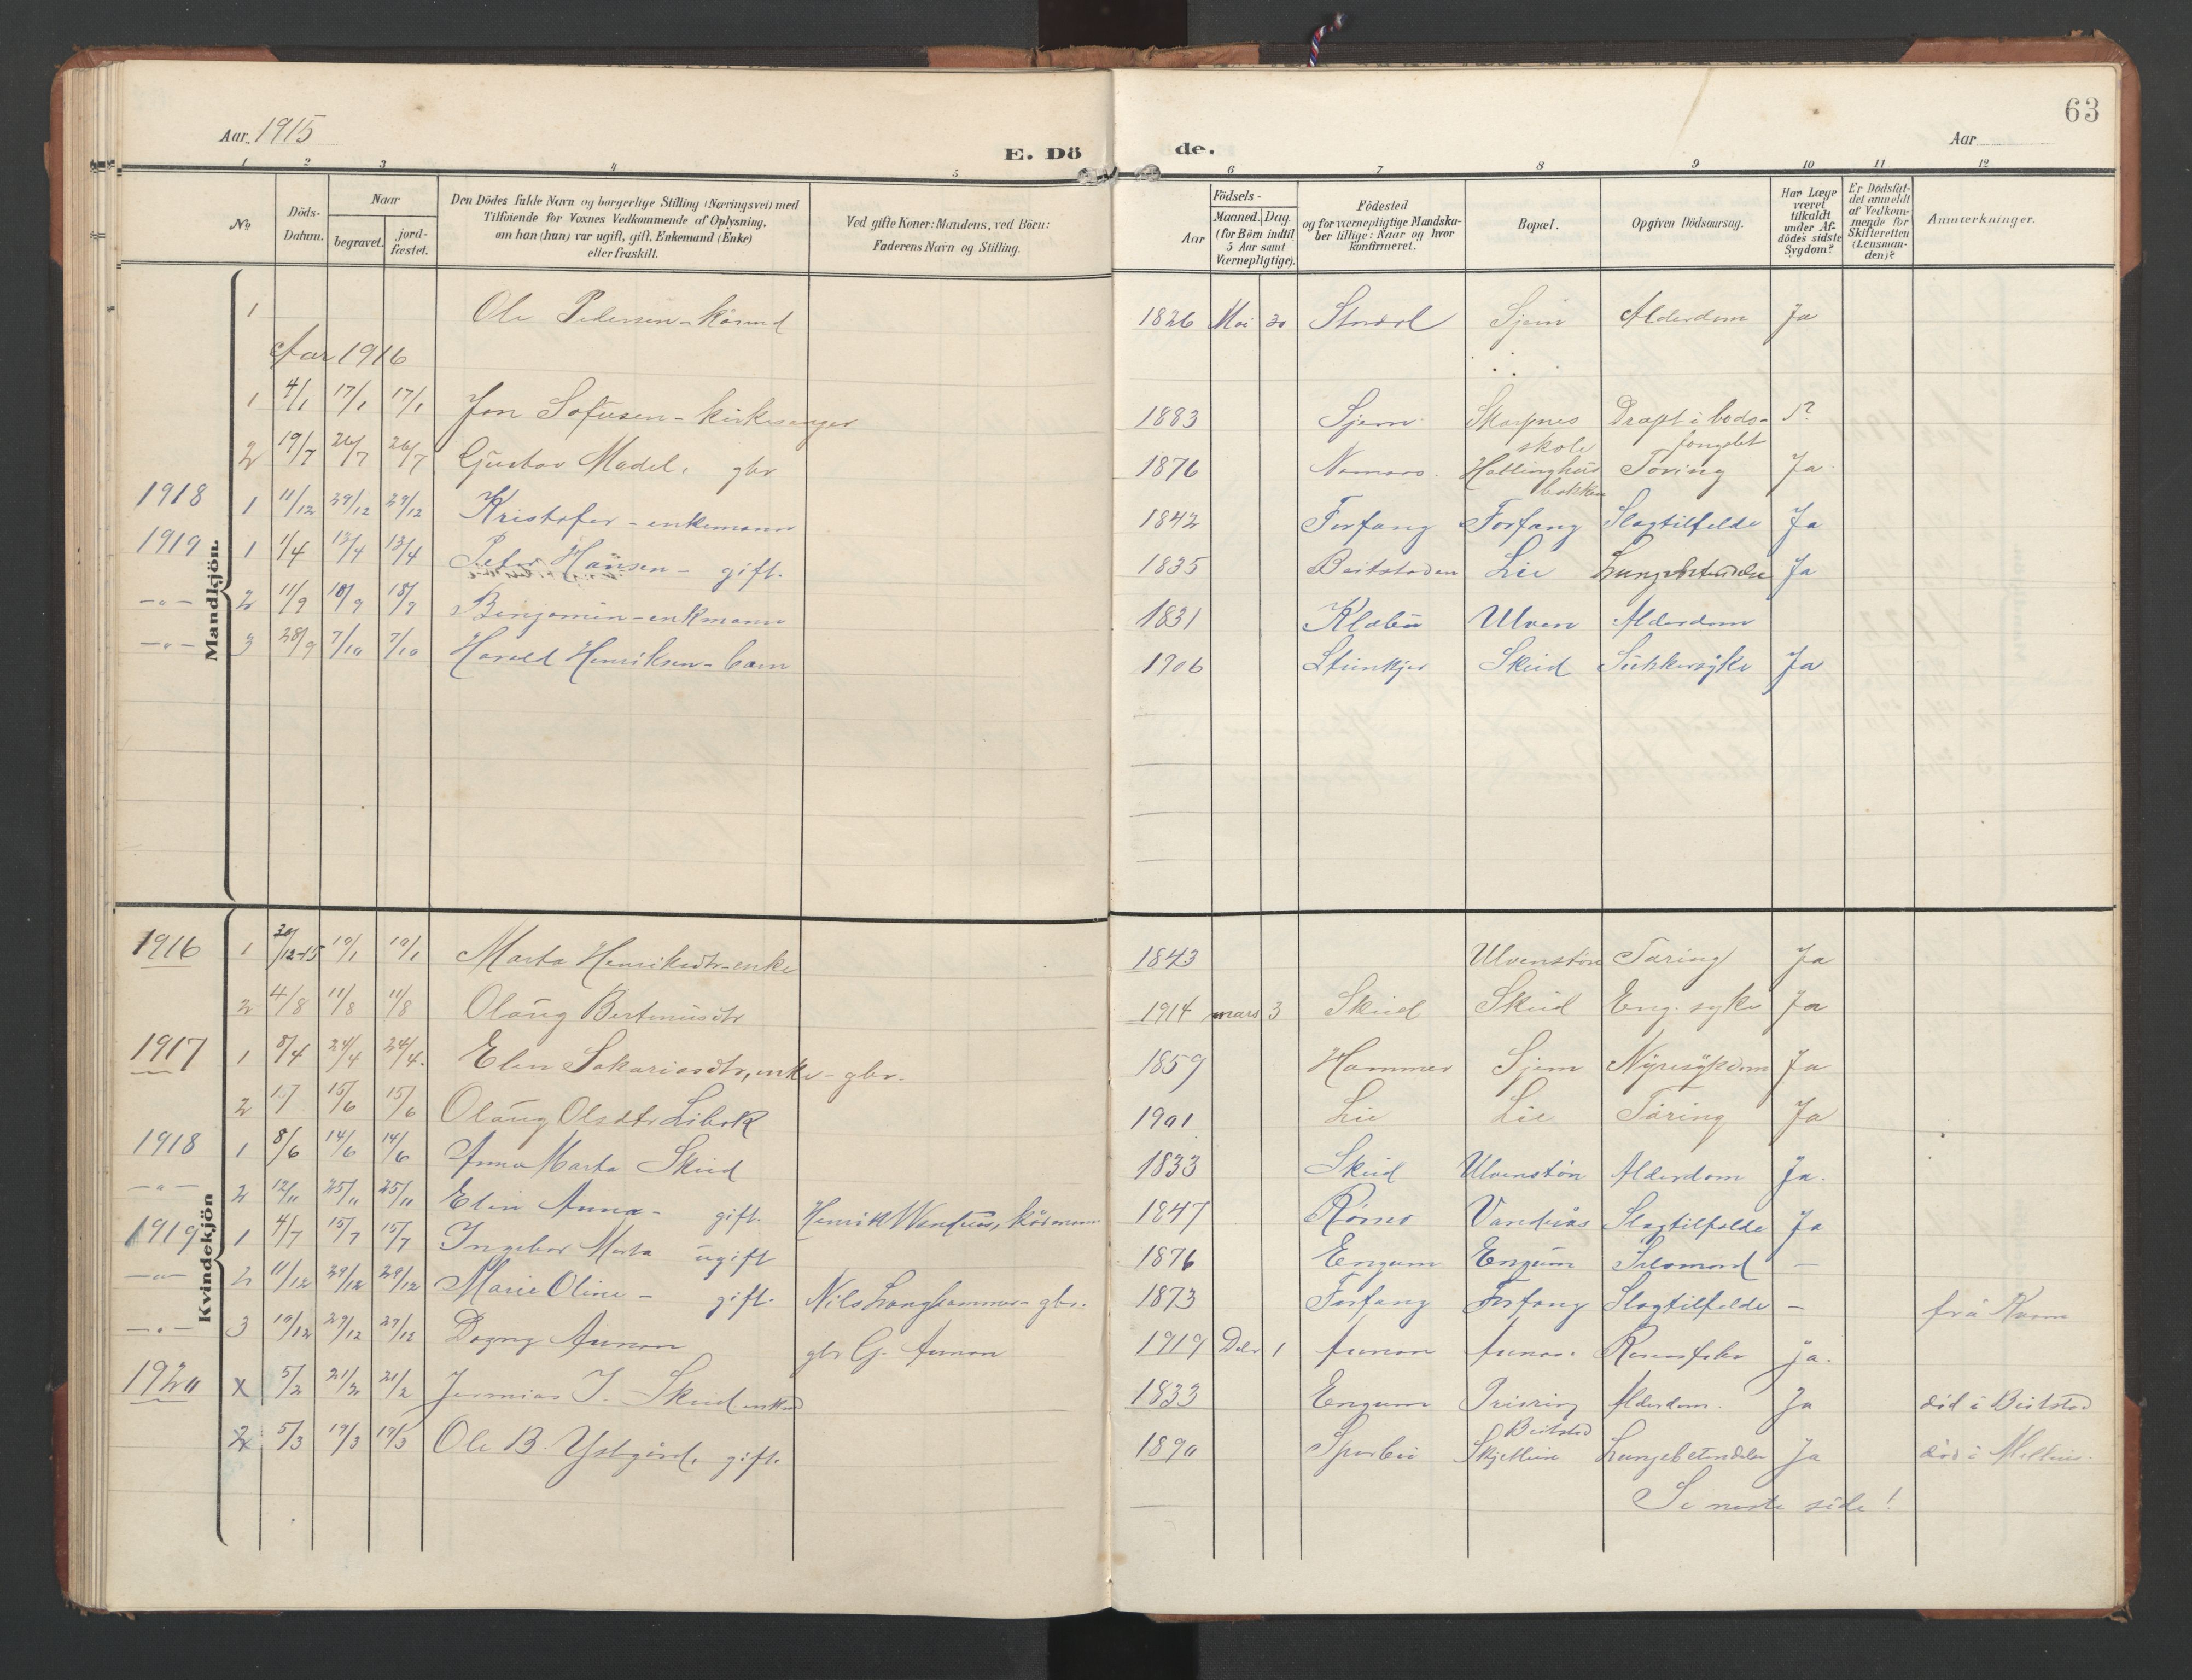 63
Aar 1915
E. Dö
de.
Aar
1 2 3 4 5 6 7 8 9 10 11 12
No
Döds-Datum.
Naar
begravet.
jord-fæstet.
Den Dödes fulde Navn og borgerlige Stilling (Næringsvei) med
Tilföiende for Voxnes Vedkommende af Oplysning,
om han (hun) var ugift, gift, Enkemand (Enke)
eller fraskilt.
Ved gifte Koner: Mandens, ved Börn:
Faderens Navn og Stilling.
Födsels-
Aar
Maaned. Dag.
(for Börn indtil
5 Aar samt
Værnepligtige).
Födested
og for værnepligtige Mandska-
ber tillige: Naar og hvor
konfirmeret.
Bopæl.
Opgiven Dödsaarsag.
Har Læge
været
tilkaldt
under Af-
dödes sidste
Sygdom?
Er Dödsfal-
det anmeldt
af Vedkom-
mende for
Skifteretten
(Lensman-
den)?
Anmærkninger.
Mandkjön.
1 Ole Pedersen - kårmd 1826 Mai 30 Sjem Alderdom Ja
Aar 1916
1 4/1 17/1 17/1 Jon Sofusen - kirkesanger 1883 Sjem Skarpnes skole Dræpt i bods-fengslet ?
2 19/7 26/7 26/7 Gustav Madel. gbr 1876 Namsos Hallinghusbakken Tæring Ja
1918 1 11/12 29/12 29/12 Kristofer - enkemann 1842 Forfang Forfang Slagtilfelde Ja
1919 1 1/4 13/4 13/4 Peter Hansen - gift. 1835 Beitstaden Lie Lungebetendelse Ja
-"- 2 11/9 18/9 18/9 Benjamin - enkmann 1831 Klæbu Ulven Alderdom
-"- 3 28/9 7/10 7/10 Harald Henriksen - barn 1906 Steinkjer Skeid Sukkersyke Ja
Kvindekjön
1916 1 /12-15 19/1 19/1 Marta Henriksdtr - enke 1843 Ulvenstøn Tæring Ja
2 4/8 11/8 11/8 Olaug Bertinusdtr 1914 mars 3 Skeid Skeid Eng. syke Ja
1917 1 8/4 24/4 24/4. Elen Sakariasdtr, enke - gbr. 1859 Hammer Sjem Nyresykdom Ja
2 15/6 15/6 Olaug Olsdtr Libak 1901 Lie Lie Tæring Ja
1918 1 8/6 14/6 14/6 Anna Marta Skeid 1833 Skeid Ulvenstøn Alderdom Ja.
-"- 2 12/11 25/11 25/11 Elin Anna - gift. Henrik Vandsås, kårmann 1847 Rømo Vandsås Slagtilfelde Ja
1919 1 4/7 15/7 15/7 Ingebor Marta ugift 1876 Engum Engum Selvmord -
-"- 2 11/12 29/12 29/12 Marie Oline - gift. Nils Langhammer - gbr. 1873 Forfang Forfang Slagtilfelde - frå Kvam
-"- 3 19/12 29/12 29/12 Dagny Aunan gbr G. Aunan 1919 Desbr 1 Aunan Aunan ja.
1920 x 5/2 21/2 21/2 Jermias J. Skeid enkmd 1833 Engum Beitstad Alderdom. Ja død i Beitstad
2 5/3 19/3 19/3 Ole B. Ystgård. gift. 1890 Sparbu Lungebetendelse Ja død i
Se neste side!